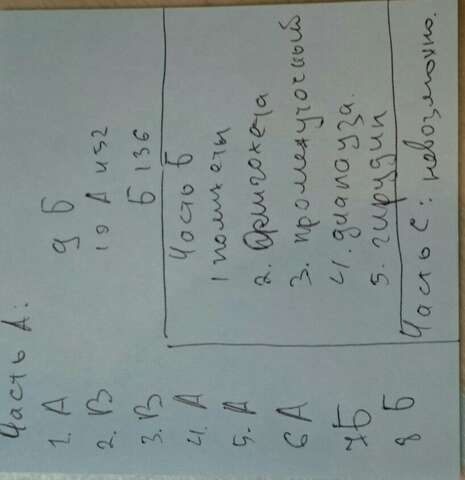 Часть А:
1. А
2. В
3. В
4. А
5. А
6 А
7 Б
8 Б
9 Б
10 А 452
Б 136
Часть Б
1 полихеты
2. Олигохета
3. промежуточный
4. диапауза.
5. гирудин
Часть С: невозможно.